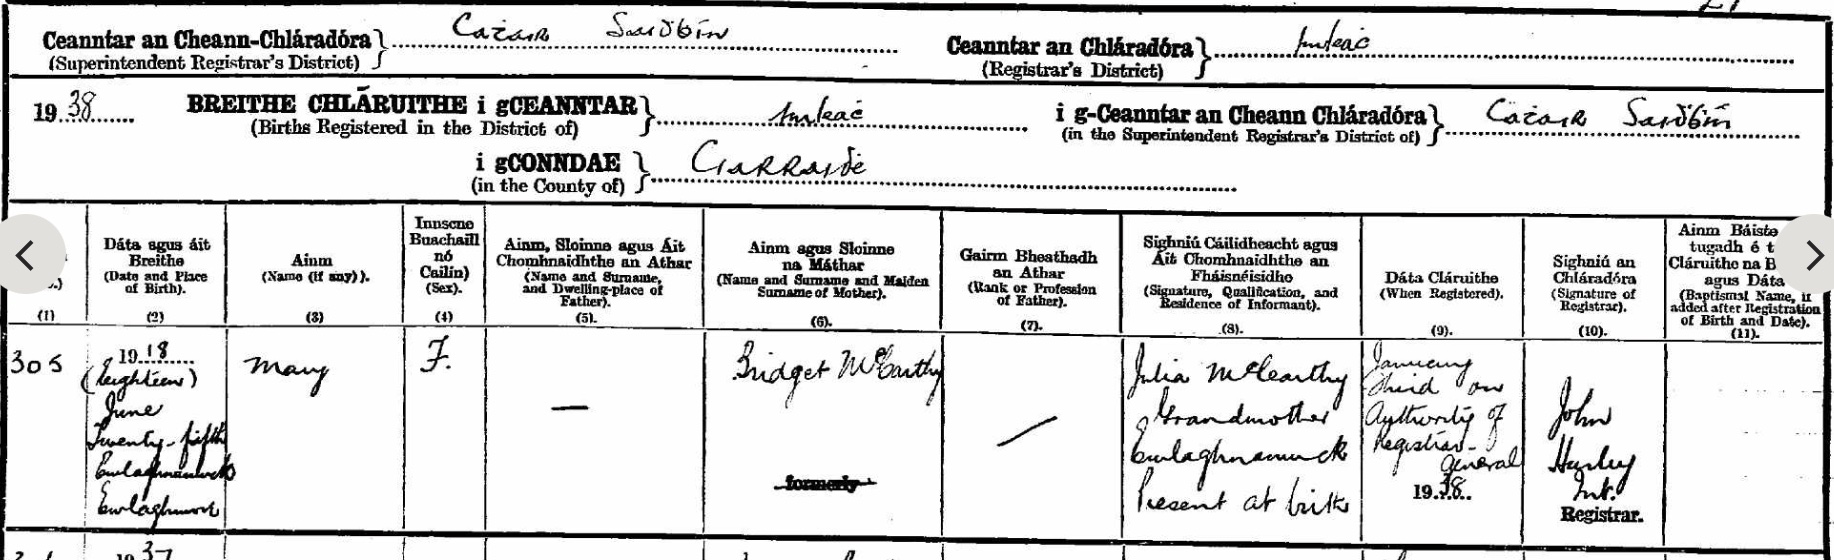 Ceanntar an Cheann-Chláradóra} Caṫair Saiḋḃín
(Superintendent Registrar's District)
Ceanntar an Chláradóra}
(Registrar's District)
1938 BREITHE CHLÁRUITHE i gCEANNTAR}
(Births Registered in the District of)
i g-Ceanntar an Cheann Chláradóra} Caṫair Saiḋḃín
(in the Superintendent Registrar's District of)
i gCONNDAE} Ciarraiḋe
(in the County of)
(1)
Dáta agus áit
Breithe
(Date and Place
of Birth).
(2)
Ainm
(Name (if any)).
(3)
Innscne
Buachaill
nó
Cailín)
(Sex).
(4)
Ainm, Sloinne agus Áit
Chomhnaidhthe an Athar
(Name and Surname,
and Dwelling-place of
Father).
(5).
Ainm agus Sloinne
na Máthar
(Name and Surname and Maiden
Surname of Mother).
(6).
Gairm Bheathadh
an Athar
(Rank or Profession
of Father).
(7).
Sighniú Cáilidheacht agus
Áit Chomhnaidhthe an
Fháisnéisidhe
(Signature, Qualification, and
Residence of Informant).
(8).
Dáta Cláruithe
(When Registered).
(9).
Sighniú an
Chláradóra
(Signature of
Registrar).
(10).
Ainm Báiste
tugadh é t
Cláruithe na B
agus Dáta
(Baptismal Name, if
added after Registration
of Birth and Date).
(11).
305
1918
(Eighteen)
June
Twenty-fifth
Mary
F.
—
Bridget McCarthy
formerly
Julia McCarthy
Grandmother
Present at birth
January
third on
Authority of
Registrar-
General
1938.
John
Hurley
Int.
Registrar.
1937